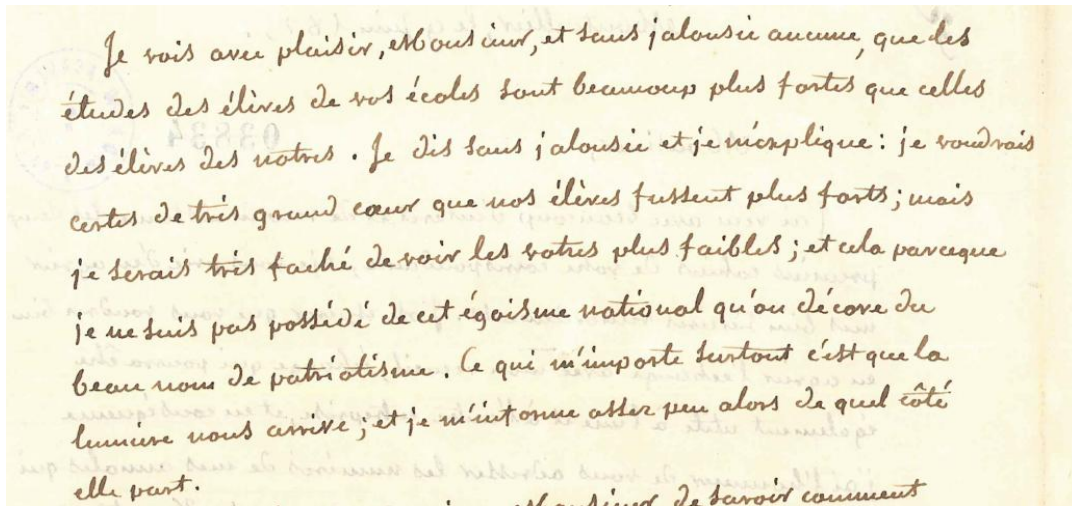 Je vois avec plaisir, Monsieur, et sans jalousie aucune, que les
études des élèves de vos écoles sont beaucoup plus fortes que celles
des élèves des notres. Je dis sans jalousie et je m'explique : je voudrais
certes de très grand cœur que nos élèves fussent plus forts ; mais
je serais très faché de voir les votres plus faibles ; et cela parceque
je ne suis pas possédé de cet égoisme national qu'on décore du
beau nom de patriotisme. Ce qui m'importe surtout c'est que la
lumière nous arrive ; et je m'informe assez peu alors de quel côté
elle part.
Monsieur de savoir comment
03834